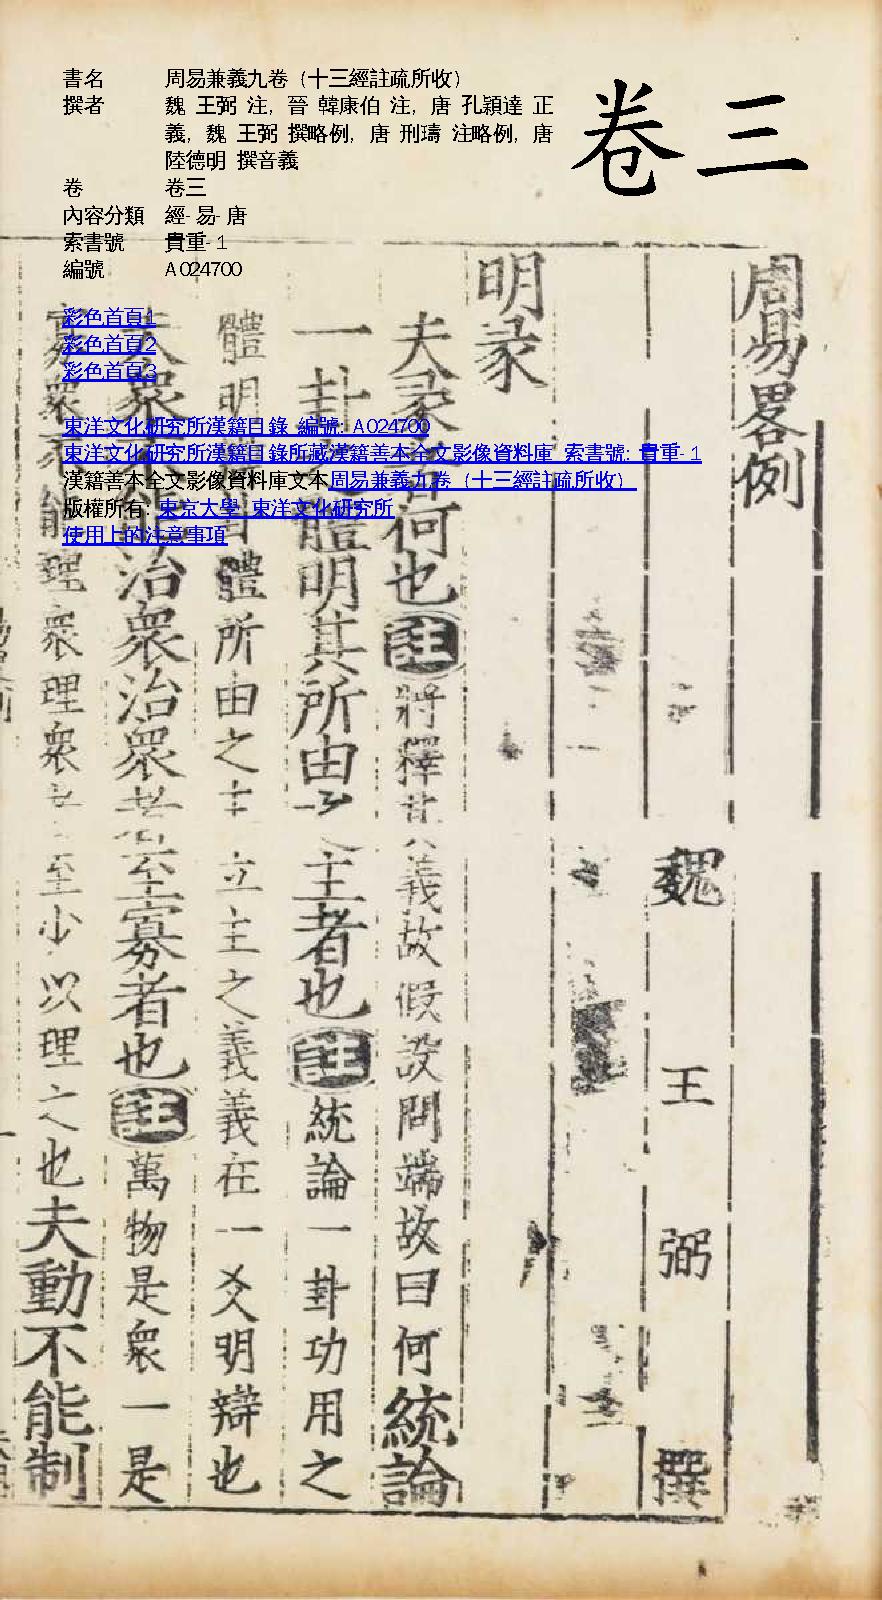 卷三
書名 周易兼義九卷（十三經註疏所收）
撰者 魏 王弼 注，晉 韓康伯 注，唐 孔穎達 正
義，魏 王弼 撰略例，唐 刑璹 注略例，唐
陸德明 撰音義
卷 卷三
內容分類 經-易-唐
索書號 貴重-1
編號 A024700
彩色首頁1
彩色首頁2
彩色首頁3
東洋文化研究所漢籍目錄 編號: A024700
東洋文化研究所漢籍目錄所藏漢籍善本全文影像資料庫 索書號: 貴重-1
漢籍善本全文影像資料庫文本周易兼義九卷（十三經註疏所收）
版權所有: 東京大學 東洋文化研究所
使用上的注意事項
周易畧例
魏 王 弼 撰
明彖
夫彖者何也註將釋其義故假設問端故曰何統論
一卦之體明其所由之主者也註統論一卦功用之
體明辯卦體所由之主立主之義義在一爻明辯也
夫衆不能治衆治衆者至寡者也註萬物是衆一是
寡衆不能理衆理衆者至少以理之也夫動不能制